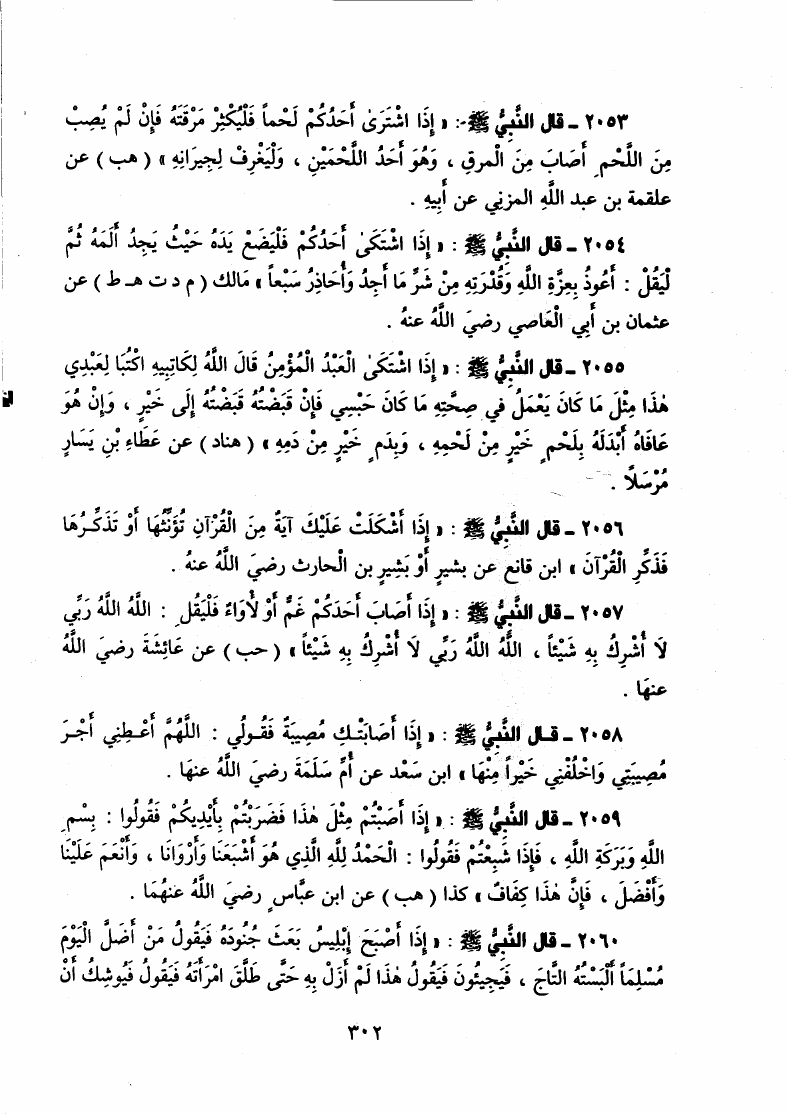 ٢٠٥٣ - قال النَّبِيُّ ﷺ: « إِذَا اشْتَرَىٰ أَحَدُكُمْ لَحْماً فَلْيُكْثِرْ مَرْقَتَهُ فَإِنْ لَمْ يُصِبْ
مِنَ اللَّحْمِ أَصَابَ مِنَ الْمرقِ ، وَهُوَ أَحَدُ اللَّحْمَيْنِ ، وَلْيَغْرِفْ لِجِيرَانِهِ » ( هب ) عن
علقمة بن عبد اللَّهِ المزني عن أَبِيهِ .
٢٠٥٤ - قال النَّبِيُّ ﷺ : « إِذَا اشْتَكَىٰ أَحَدُكُمْ فَلْيَضَعْ يَدَهُ حَيْثُ يَجِدُ أَلَمَهُ ثُمَّ
لْيَقُلْ : أَعُوذُ بِعِزَّةِ اللَّهِ وَقُدْرَتِهِ مِنْ شَرِّ مَا أَجِدُ وَأُحَاذِرُ سَبْعاً » مَالك ( م د ت هـ ط ) عن
عثمان بن أَبي الْعَاصي رضيَ اللَّهُ عنهُ .
٢٠٥٥ - قال النَّبِيُّ ﷺ : « إِذَا اشْتَكَىٰ الْعَبْدُ الْمُؤْمِنُ قَالَ اللَّهُ لِكَاتِبِيهِ اكْتُبَا لِعَبْدِي
هٰذَا مِثْلَ مَا كَانَ يَعْمَلُ في صِحَّتِهِ مَا كَانَ حَبْسِي فَإِنْ قَبَضْتُهُ قَبَضْتُهُ إِلَى خَيْرٍ ، وَإِنْ هُوَ
عَافَاهُ أَبْدَلَهُ بِلَحْمٍ خَيْرٍ مِنْ لَحْمِهِ ، وَبِدَمٍ خَيْرٍ مِنْ دَمِهِ » ( هناد ) عن عَطَاءِ بْنِ يَسَارٍ
مُرْسَلاً .
٢٠٥٦ - قال النَّبِيُّ ﷺ : « إِذَا أَشْكَلَتْ عَلَيْكَ آيَةٌ مِنَ الْقُرْآنِ تُؤَنِّثُهَا أَوْ تُذَكِّرُهَا
فَذَكِّرِ الْقُرْآنَ » ابن قانع عن بشيرٍ أَوْ بَشِيرٍ بن الْحارث رضيَ اللَّهُ عنهُ .
٢٠٥٧ - قال النَّبِيُّ ﷺ : « إِذَا أَصَابَ أَحَدَكُمْ غَمٌّ أَوْ لْأوَاءُ فَلْيَقُلِ : اللَّهُ اللَّهُ رَبِّي
لَا أُشْرِكُ بِهِ شَيْئاً ، اللَّهُ اللَّهُ رَبِّي لَا أُشْرِكُ بِهِ شَيْئاً » ( حب ) عن عَائِشَةَ رضيَ اللَّهُ
عنها .
٢٠٥٨ - قال النَّبِيُّ ﷺ : « إِذَا أَصَابَتْكِ مُصِيبَةٌ فَقُولِي : اللَّهُمَّ أَعْطِنِي أَجْرَ
مُصِيبَتِي وَاخْلُفْنِي خَيْراً مِنْهَا » ابن سَعْد عن أُمِّ سَلَمَةَ رضيَ اللَّهُ عنهَا .
٢٠٥٩ - قال النَّبِيُّ ﷺ : « إِذَا أَصَبْتُمْ مِثْلَ هٰذَا فَضَرَبْتُمْ بِأَيْدِيكُمْ فَقُولُوا : بِسْمِ
اللَّهِ وَبَرَكَةِ اللَّهِ ، فَإِذَا شَبِعْتُمْ فَقُولُوا : الْحَمْدُ لِلَّهِ الَّذِي هُوَ أَشْبَعَنَا وَأَرْوَانَا ، وَأَنْعَمَ عَلَيْنَا
وَأَفْضَلَ ، فَإِنَّ هٰذَا كِفَافٌ » كذا ( هب ) عن ابن عبَّاسٍ رضيَ اللَّهُ عنهُمَا .
٢٠٦٠ - قال النَّبِيُّ ﷺ : « إِذَا أَصْبَحَ إِبْلِيسُ بَعَثَ جُنُودَهُ فَيَقُولُ مَنْ أَضَلَّ الْيَوْمَ
مُسْلِمَاً أَلْبَسْتُهُ التَّاجَ ، فَيَجِيئُونَ فَيَقُولُ هٰذَا لَمْ أَزَلْ بِهِ حَتَّى طَلَّقَ امْرَأَتَهُ فَيَقُولُ فَيُوشِكُ أَنْ
٣٠٢